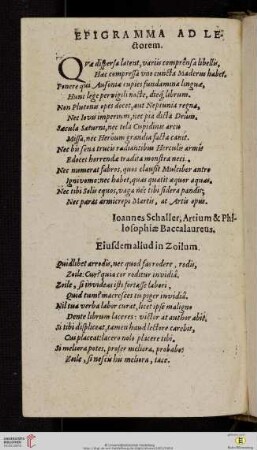 EPIGRAMMA AD LE-
ctorem.
QVæ dispersa latent, varijs comprensa libellis,
Hac compressa vno cuncta Maderus habet.
Ponere qui Ausoniæ cupies fundamina linguæ,
Hunc lege peruigili nocte, dieq; librum.
Non Plutonis opes docet, aut Neptunia regna,
Nec Iouis imperium, nec pia dicta Deûm.
Sæcula Saturni, nec tela Cupidinis arcu
Missa, nec Heroum grandia facta canit.
Nec bis senis trucis radiantibus Herculis armis
Edocet horrenda tradita monstra neci.
Nec numerat fabros, quos clausit Mulciber antro
Ignivomo: nec habet, quas quatit æquor aquas,
Nec tibi Solis equos, vaga nec tibi sidera pandit,
Nec parat armirepi Martis, at Artis opus.
Ioannes Schaller, Artium & Phi-
losophiæ Baccalaureus.
Eiusdem aliud in Zoilum.
Quidlibet arrodis, nec quod sacrodere, rodis,
Zoile: Cur? quia cor roditur inuidiâ.
Zoile, si inuideas isti fortasse labori,
Quid tum? macresces tu piger inuidiâ.
Nil tua verba labor curat, licet ipse maligno
Dente librum laceres: victor at author abit.
Si tibi displiceat, tamen haud lectore carebit,
Cui placeat lacero nolo placere tibi.
Si meliora potes, profer meliora, probabo:
Zoile, si nescis hu meliora, tace.